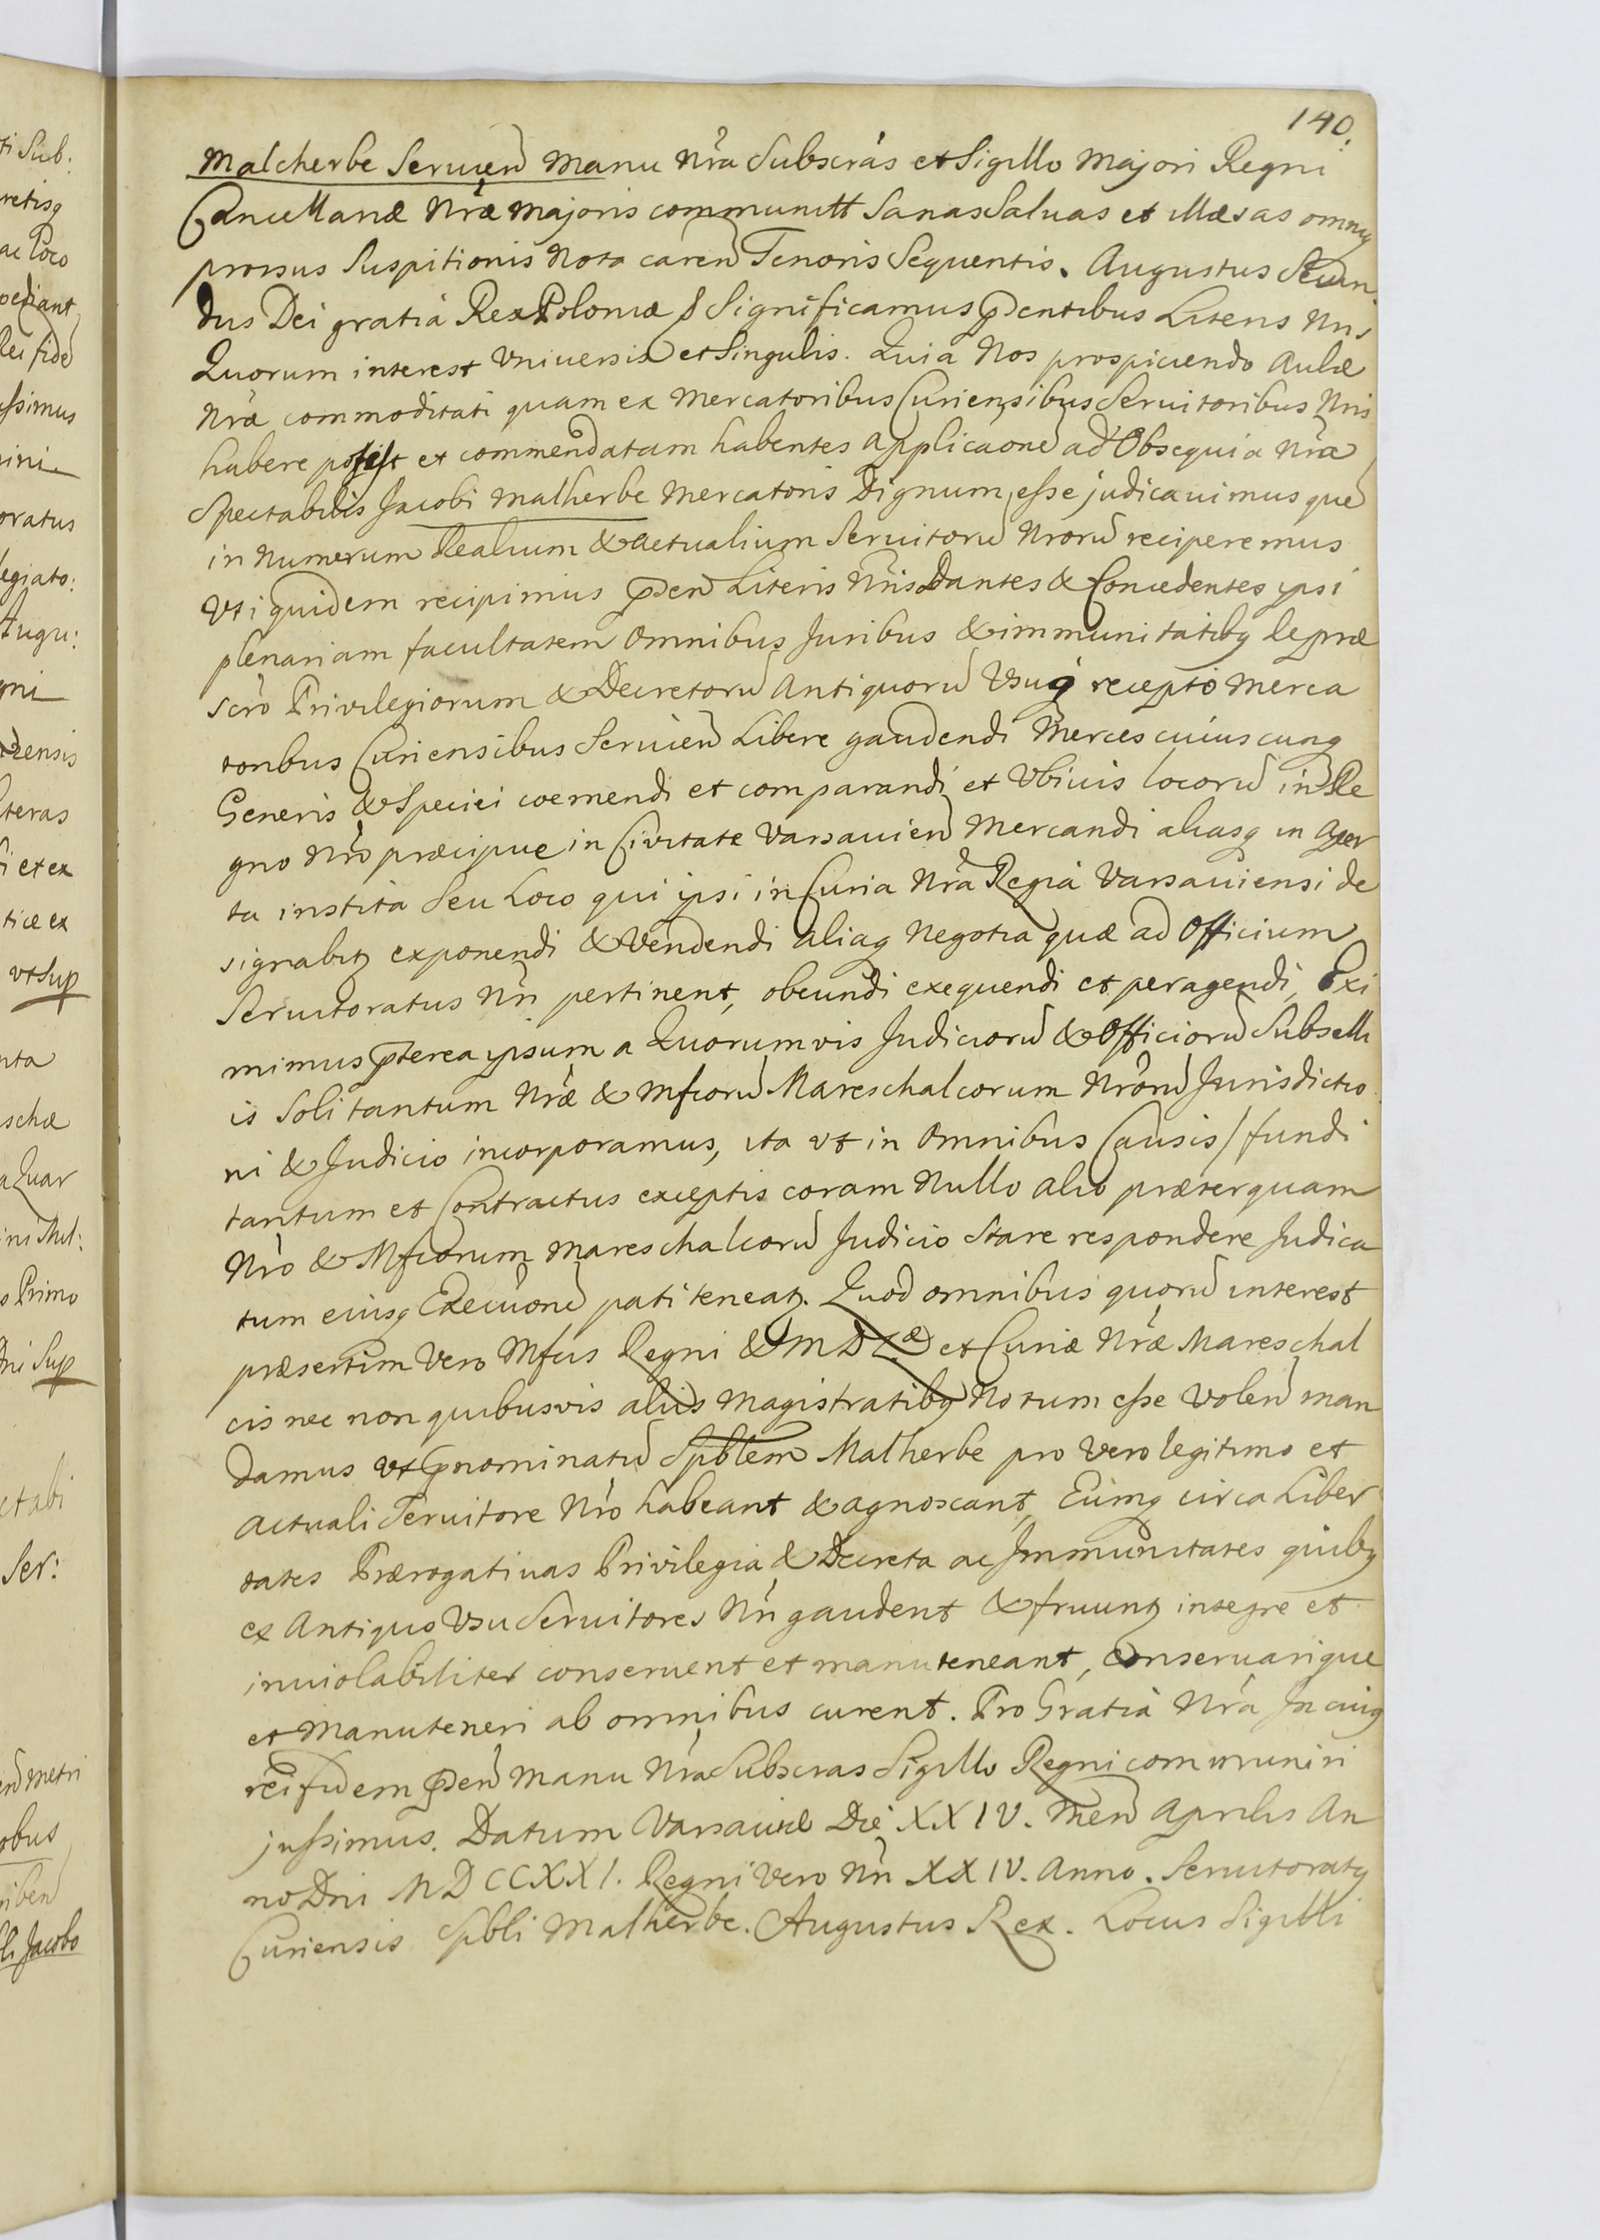 140.
Malcherbe Seruien manu nra Subscras et Sigillo Majori Regni
Cancellariæ Nræ majoris communitt Sanas Saluas et illæsas omniq
prorsus Suspitionis Nota caren Tenoris Sequentis. Augustus Secun
dus Dei gratia Rex Poloniæ Significamus pentibus Literis Nris
Quorum interest Vniuersis et Singulis. Quia Nos prospiciendo Aulæ
Nræ commoditati quam ex Mercatoribus Curiensibus Seruitoribus Nris
habere potest et commendatam habentes applicaone ad Obsequia Nra
Spectabilis Jacobi Malherbe Mercatoris Dignum esse judicauimus que
in Numerum Realium & actualium Seruitoru Nroru reciperemus
Vti quidem recipimus pen Literis Nris Dantes & Concedentes ipsi
plenariam facultatem Omnibus Juribus & immunitatibq se præ
scro Privilegiorum & Decretoru Antiquoru Vsuq recepto Merca
toribus Curiensibus Seruien Libere gaudendi Merces cuiuscunq
Generis & Speciei coemendi et comparandi et Vbiuis locoru in Re
gno Nro præcipue in Civitate Varsauien Mercandi aliasq in Aper
ta institâ Seu Loco qui ipsi in Curia Nra Regia Varsauiensi de
signabitz exponendi & Vendendi aliaq Negotia quæ ad Officium
Seruitoratus Nri pertinent, obeundi exequendi et peragendi, Exi
mimus pterea ipsum a Quorumvis Judicioru & Officioru Subselli
is Soli tantum Nræ & Mficoru Mareschalcorum Nroru Jurisdictio
ni & Judicio incorporamus, ita vt in Omnibus Causis / fundi
tantum et Contractus exceptis coram Nullo alio præterquam
Nro & Mficorum Mareschalcoru Judicio Stare respondere Judica
tum eiusq Execuone pati teneatz. Quod omnibus quoru interest
præsertim Vero Mfcis Regni & M D L æ et Curiæ Nræ Mareschal
cis nec non quibusvis aliis Magistratibq Notum esse Volen man
damus vt pnominatu Spblem Malherbe pro Vero legitimo et
Actuali Seruitore Nro habeant & agnoscant, Eumq circa Liber
tates Prærogatiuas Privilegia & Decreta ac Jmmunitates quibq
ex Antiquo Vsu Seruitores Nri gaudent & fruuntz integre et
inuiolabiliter conseruent et manuteneant, conseruarique
et Manuteneri ab omnibus curent. Pro Gratia Nra In cuiq
rei fidem pen Manu Nra Subscras Sigillo Regni communiri
jussimus. Datum Varsauiæ Die XXIV. Men Aprilis An
no Dni MDCCXXI. Regni Vero Nri XXIV. Anno. Seruitoratq
Curiensis Spbli Malherbe. Augustus Rex. Locus Sigilli